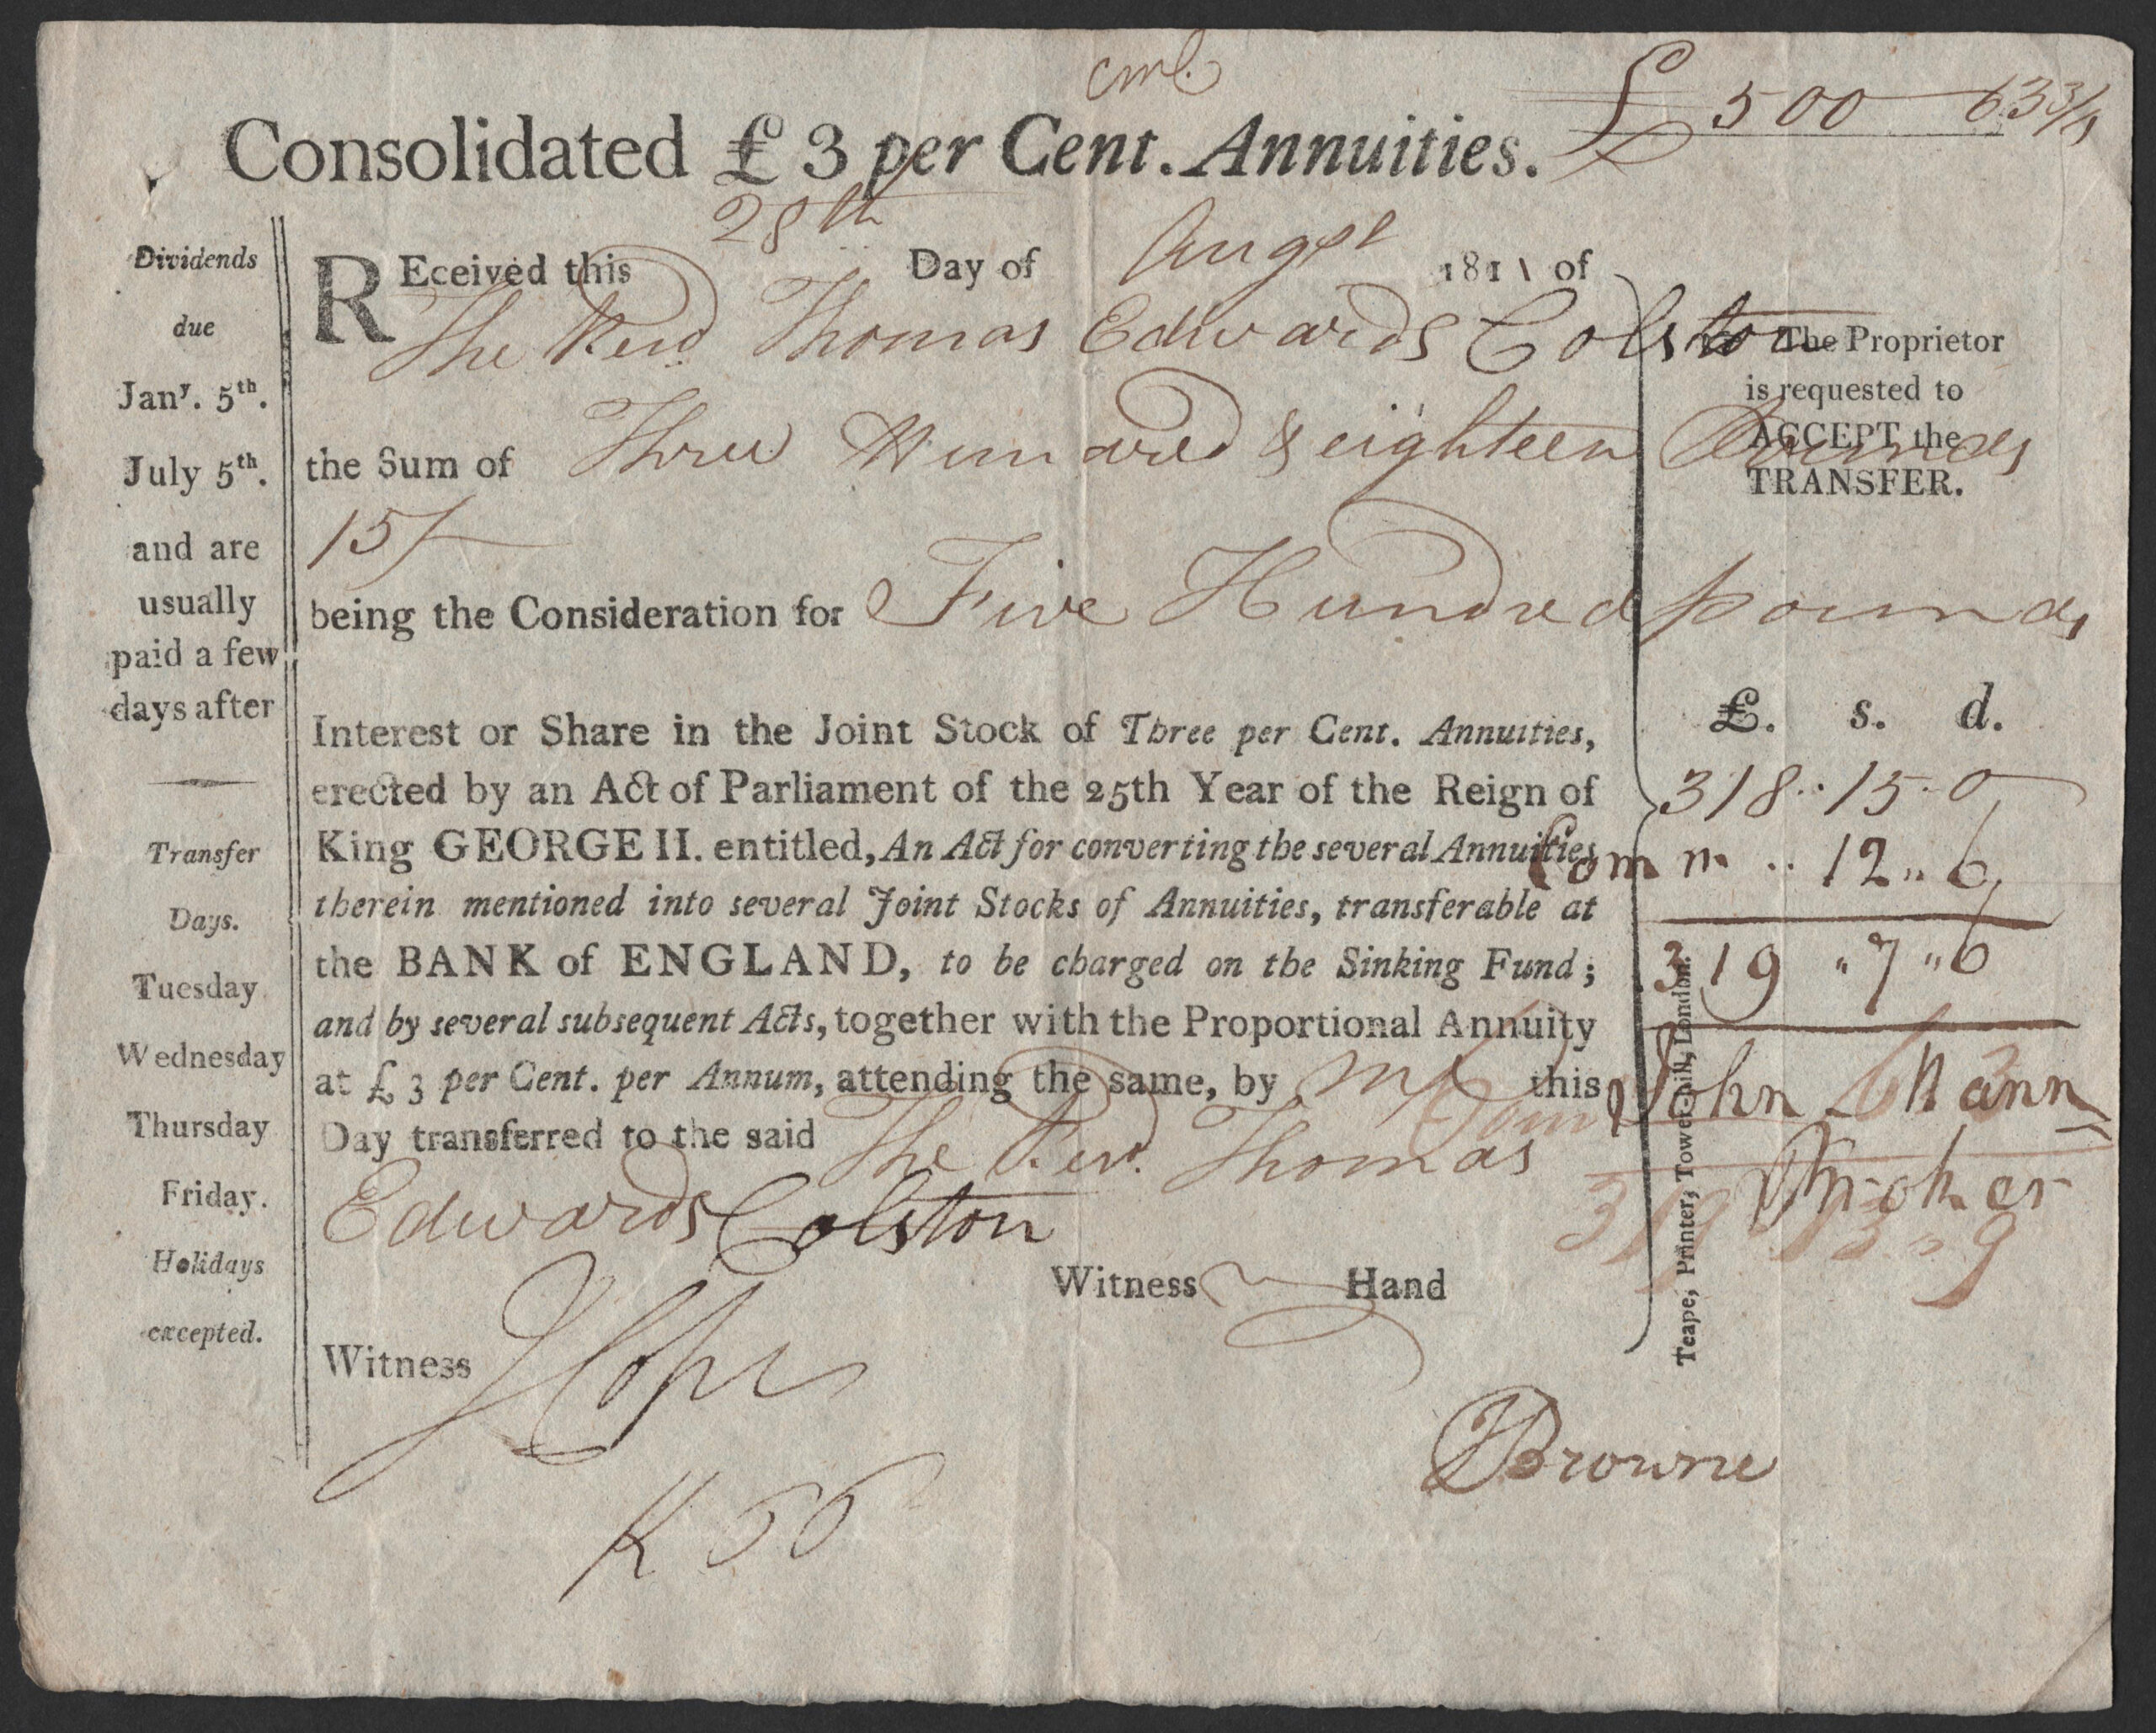 cml.
£ 500 63 3/4
Consolidated £ 3 per Cent. Annuities.
Dividends
due
Janʸ. 5ᵗʰ.
July 5ᵗʰ.
and are
usually
paid a few
days after
Transfer
Days.
Tuesday
Wednesday
Thursday
Friday.
Holidays
excepted.
REceived this 28th Day of Augst 1811 of
The Revd Thomas Edwards Colston
the Sum of Three Hundred & eighteen Pounds
15/-
being the Consideration for Five Hundred pounds
Interest or Share in the Joint Stock of Three per Cent. Annuities,
erected by an Act of Parliament of the 25th Year of the Reign of
King GEORGE II. entitled, An Act for converting the several Annuities
therein mentioned into several Joint Stocks of Annuities, transferable at
the BANK of ENGLAND, to be charged on the Sinking Fund;
and by several subsequent Acts, together with the Proportional Annuity
at £ 3 per Cent. per Annum, attending the same, by me this
Day transferred to the said The Revd. Thomas
Edwards Colston
Witness Hand
Witness
K 56
Browne
The Proprietor
is requested to
ACCEPT the
TRANSFER.
£. s. d.
318..15-0
Comm .. 12 " 6
319 " 7 " 6
John Mann
Broker
319
Teape, Printer, Tower-hill, London.